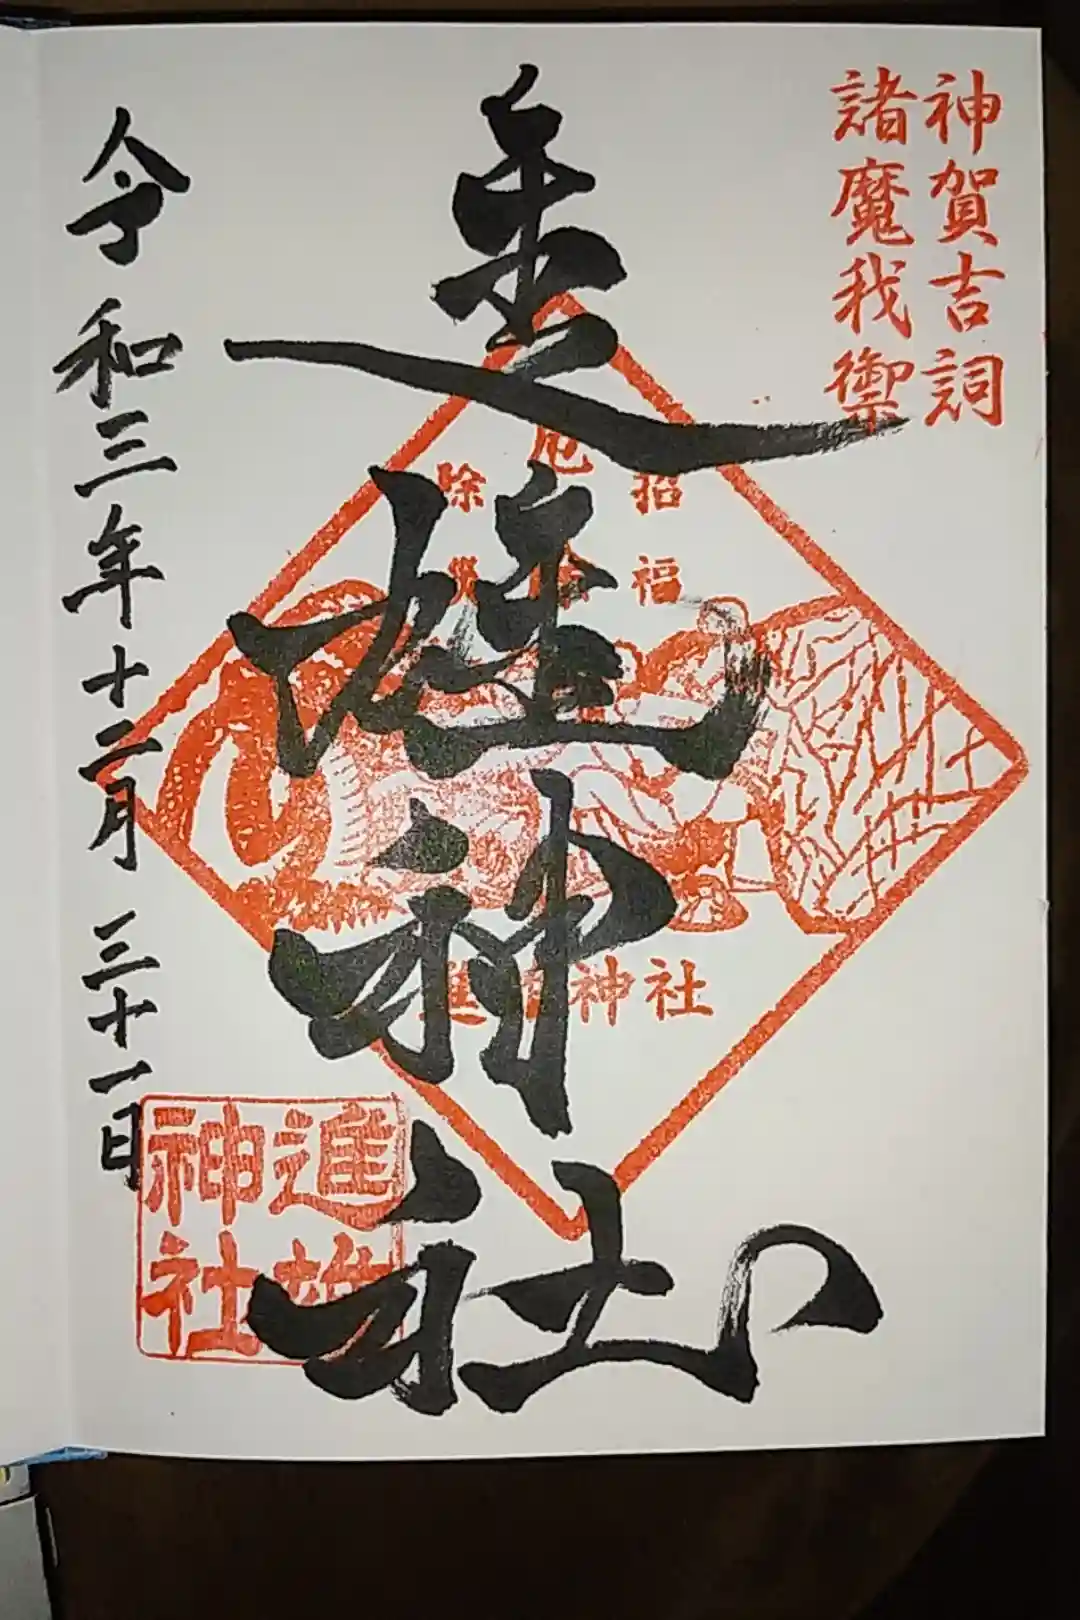 神賀吉詞
諸魔我禦
進雄神社
招福
厄
除災
進雄神社
令和三年十二月三十一日
進雄
神社